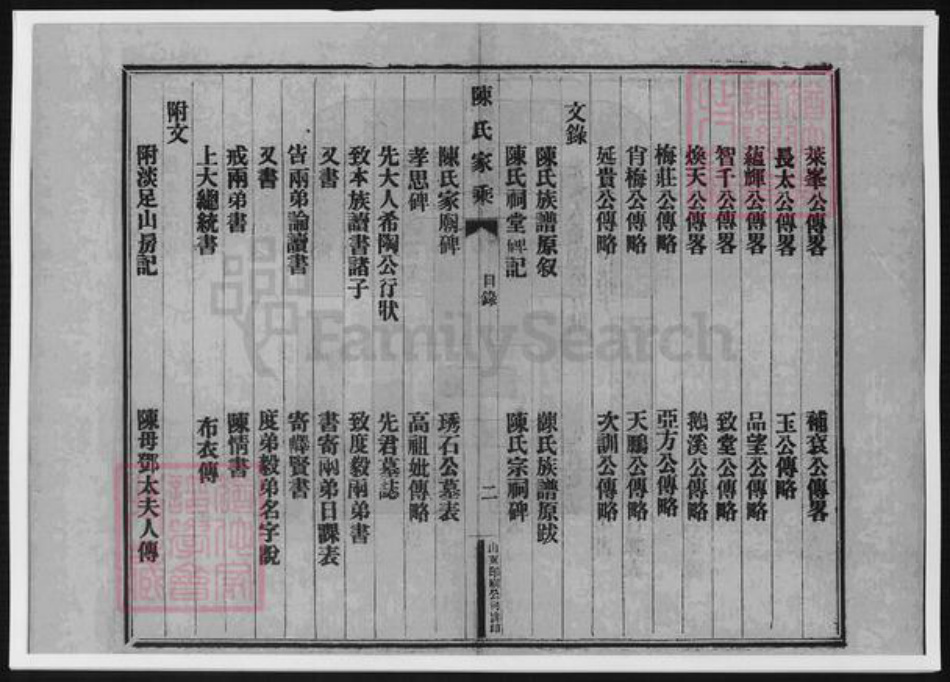 萊峯公傳畧　補袞公傳畧
長太公傳畧　玉公傳略
蘊輝公傳畧　品望公傳略
智千公傳畧　致堂公傳略
煥天公傳畧　鵝溪公傳略
梅莊公傳略　亞方公傳略
肖梅公傳略　天鵬公傳略
延貴公傳略　次訓公傳略
文錄
陳氏族譜原叙　陳氏族譜原跋
陳氏祠堂碑記　陳氏宗祠碑
陳氏家乘　目錄　二
陳氏家廟碑　琇石公墓表
孝思碑　高祖妣傳略
先大人希陶公行狀　先君墓誌
致本族讀書諸子　致度毅兩弟書
又書　書寄兩弟日課表
告兩弟論讀書　寄嶧賢書
又書　度弟毅弟名字說
戒兩弟書　陳情書
上大總統書　布衣傳
附文
附淡足山房記　陳母鄧太夫人傳
FamilySearch